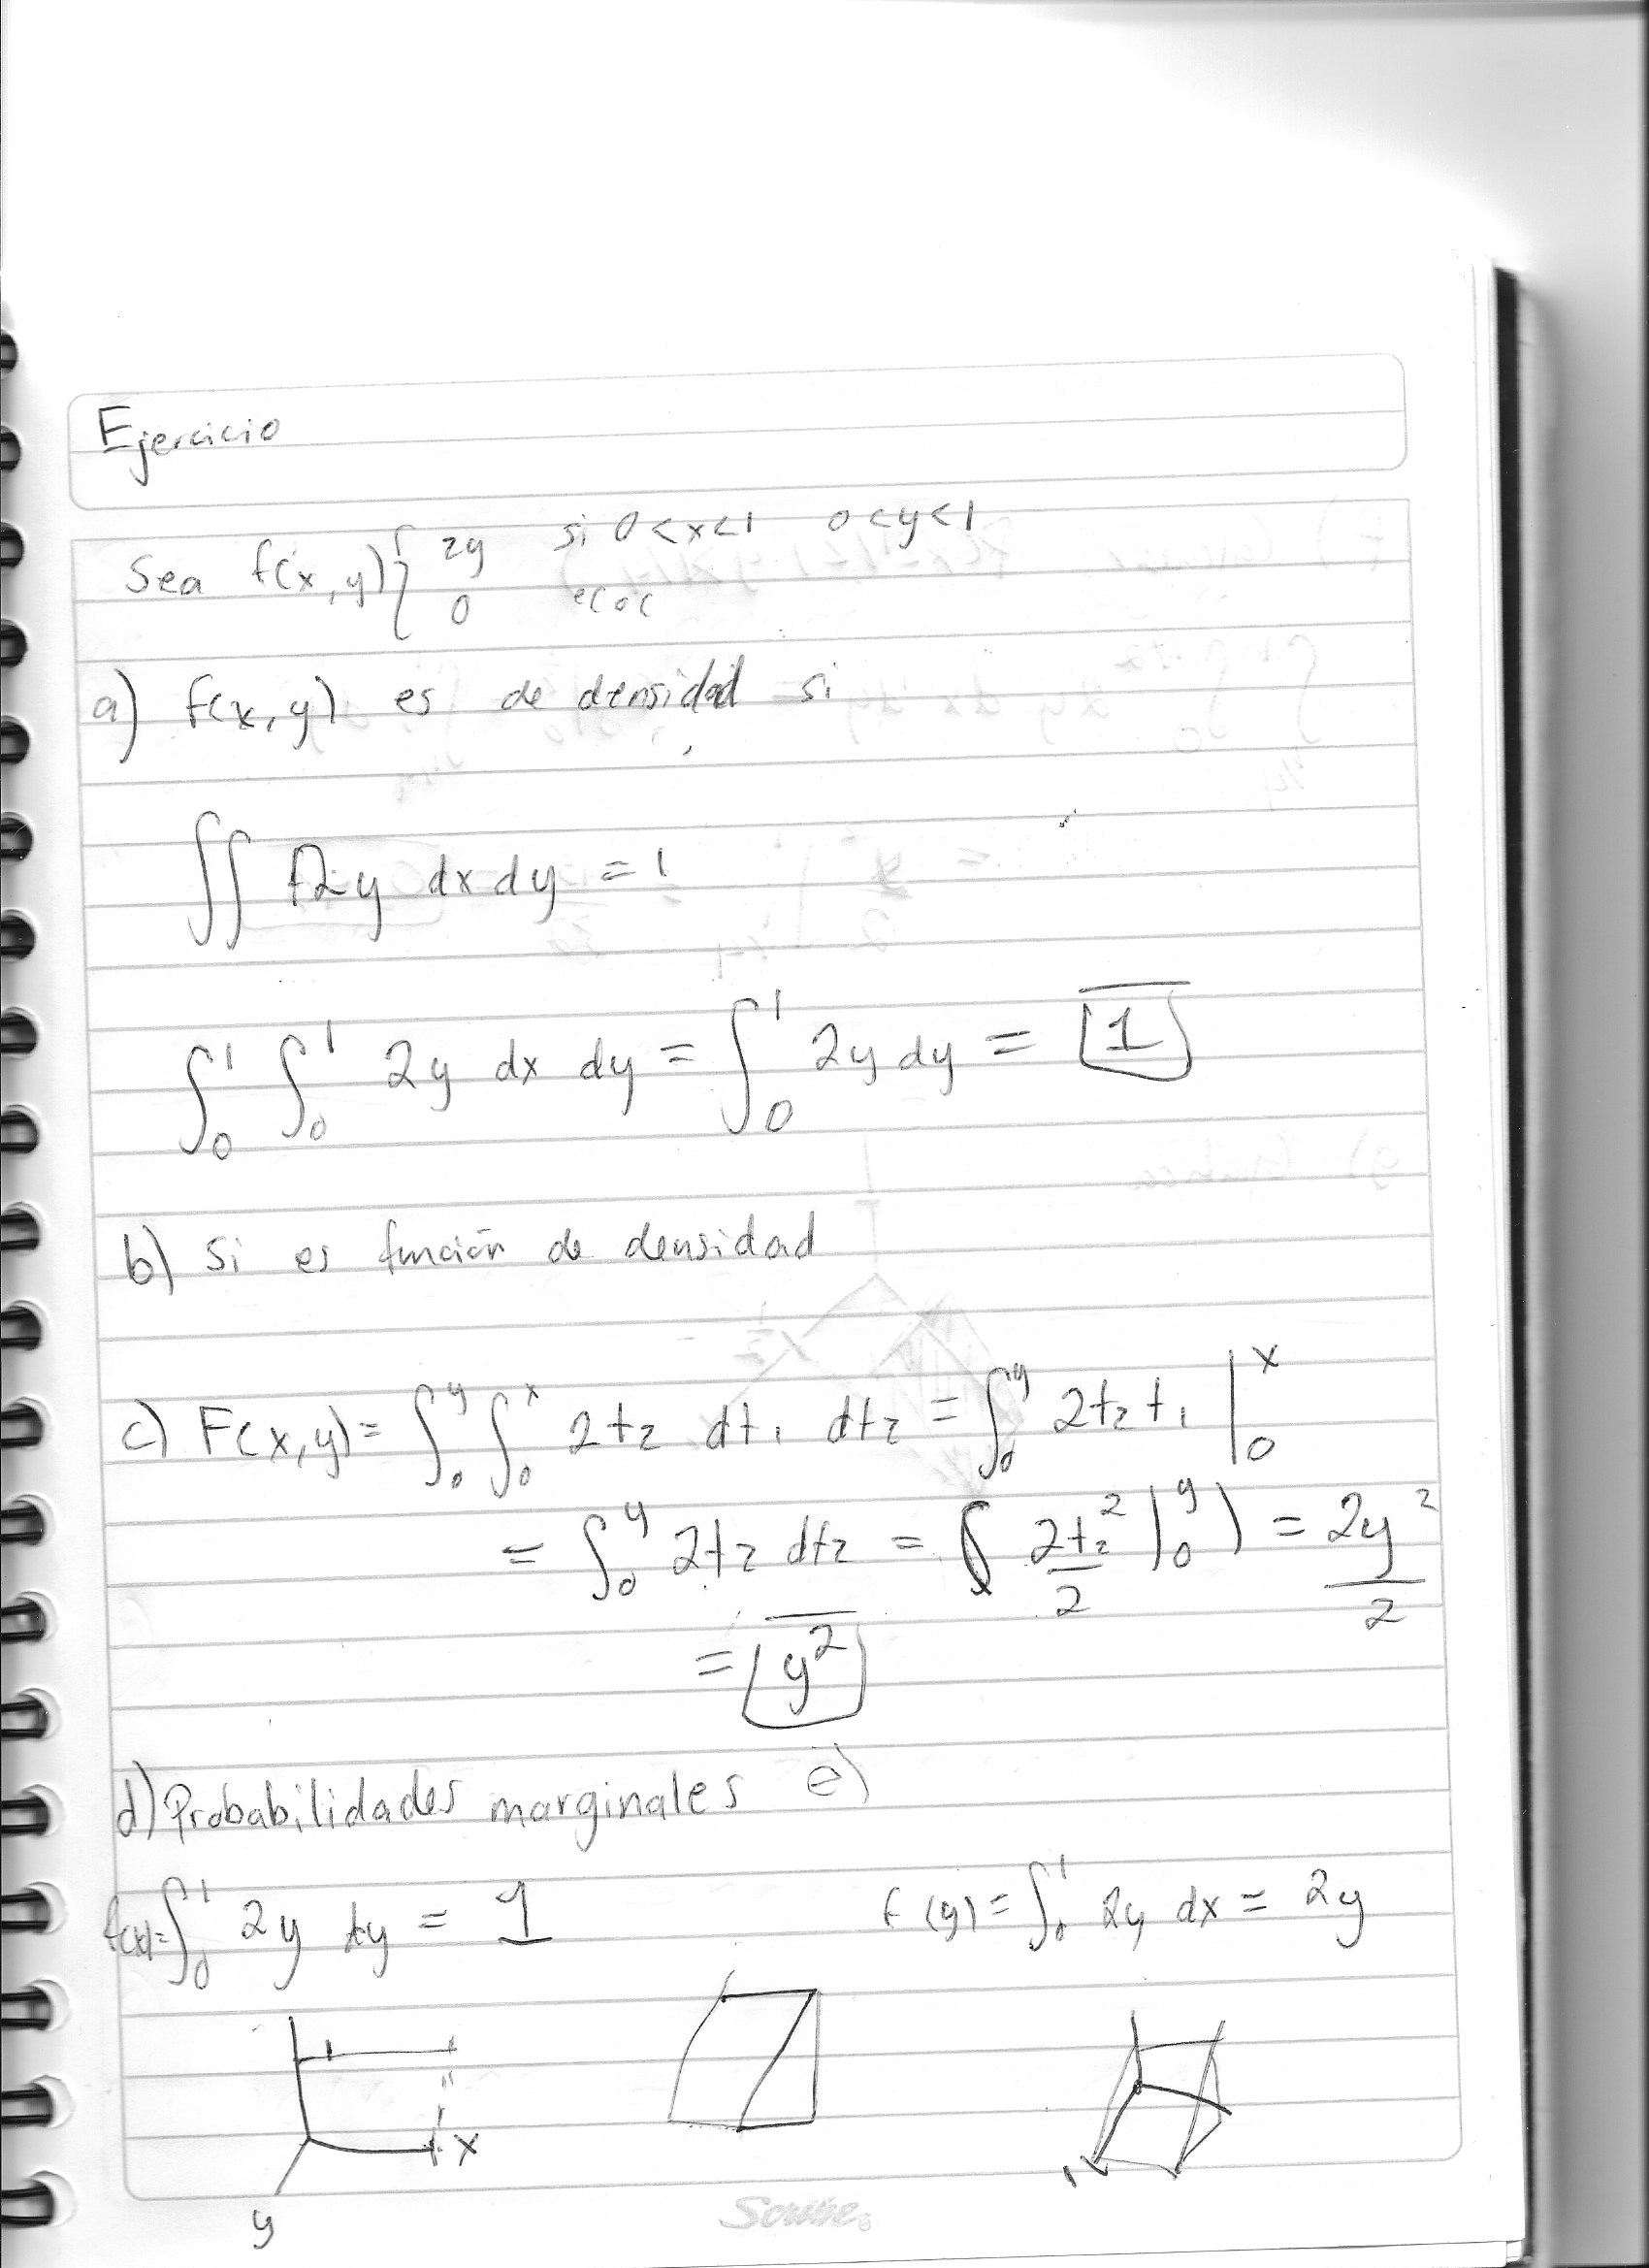 Ejercicio
Sea f(x,y) { 2y si 0<x<1 0<y<1
0 ecoc
a) f(x,y) es de densidad si
∬ 2y dx dy = 1
∫₀¹ ∫₀¹ 2y dx dy = ∫₀¹ 2y dy = 1
b) Si es función de densidad
c) F(x,y) = ∫₀ʸ ∫₀ˣ 2t₂ dt₁ dt₂ = ∫₀ʸ 2t₂ t₁ |₀ˣ
= ∫₀ʸ 2t₂ dt₂ = 2t₂²/2 |₀ʸ ) = 2y²/2
= y²
d) Probabilidades marginales e)
f(x) = ∫₀¹ 2y dy = 1 f(y) = ∫₀¹ 2y dx = 2y
1
x
y
Scribe